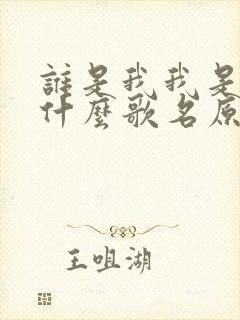 誰是我我是
什麼歌名原
王咀湖